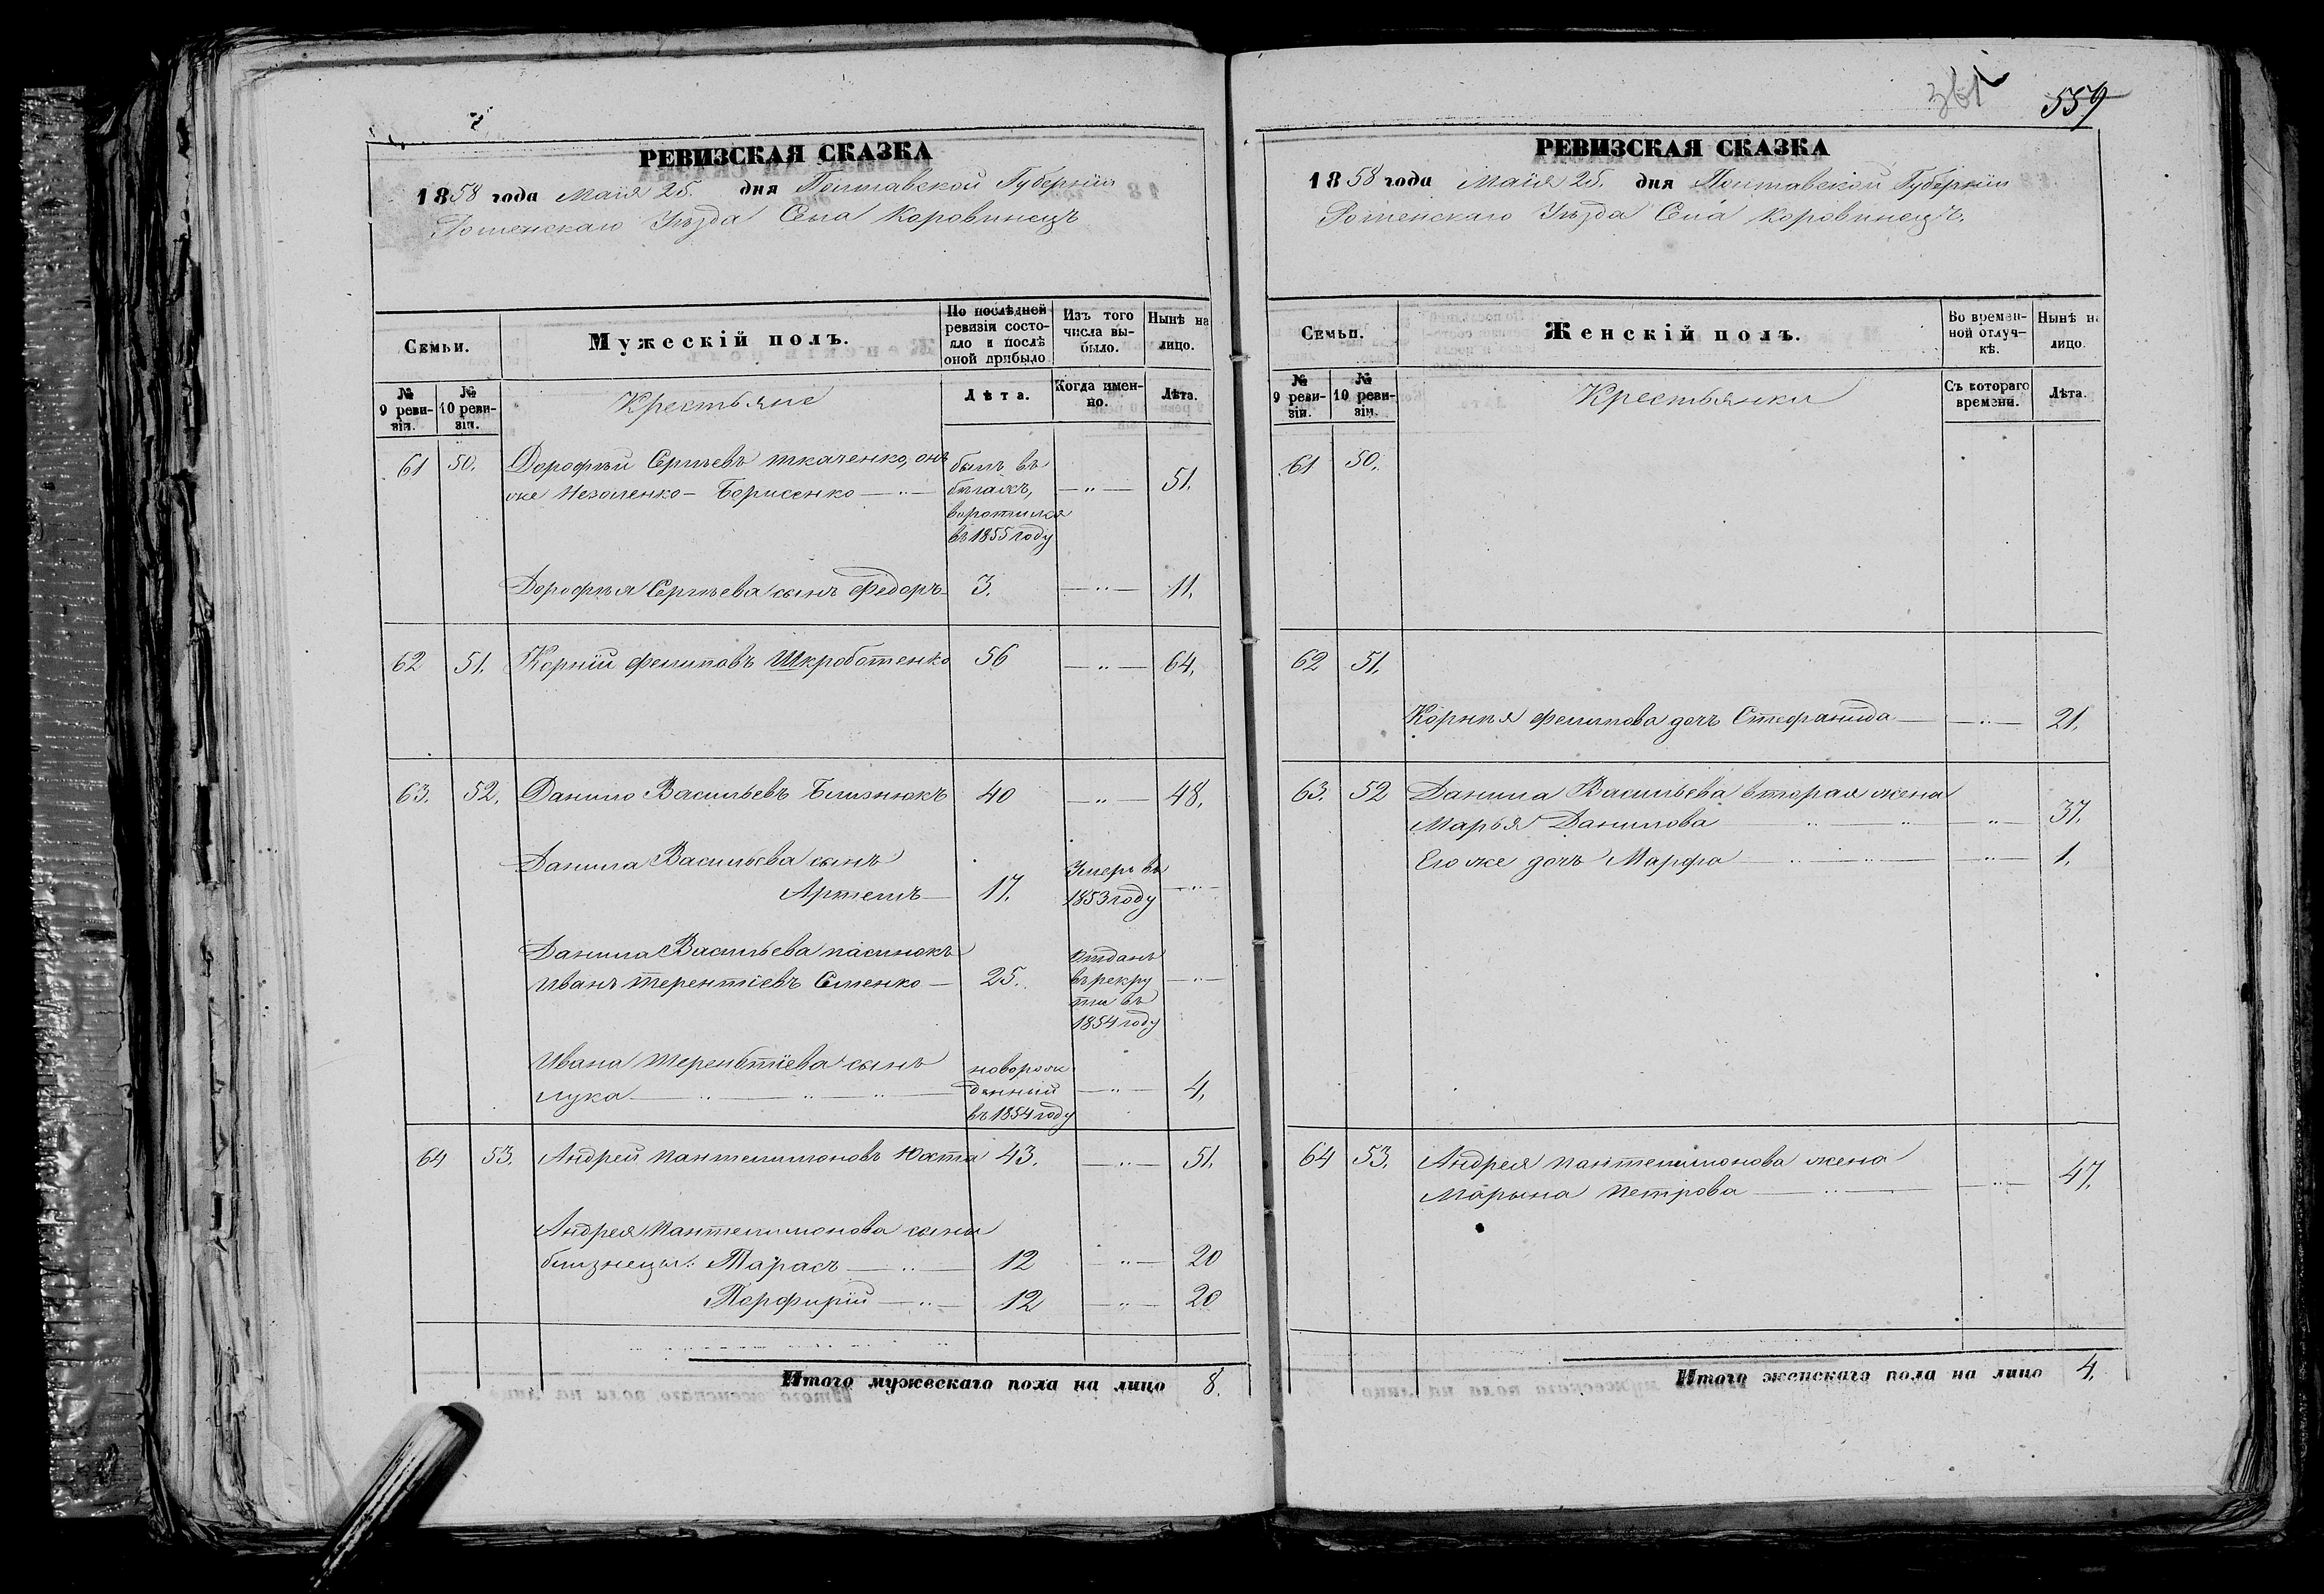 РЕВИЗСКАЯ СКАЗКА
1858 года Маія 25. дня Полтавской Губерніи
Роменскаго Уѣзда Села Коровинецъ
Семьи.
Мужескій полъ.
По послѣдней ревизіи состояло и послѣ оной прибыло
Изъ того числа выбыло.
Нынѣ на лицо.
№ 9 ревизіи.
№ 10 ревизіи.
Крестьяне
Лѣта.
Когда именно.
Лѣта.
61 50. Дорофѣй Сергѣевъ Ткаченко, онъ
же Борисенко
былъ въ
бѣгахъ,
воротился
въ 1855 году
51.
Дорофѣя Сергѣева сынъ Федоръ 3. 11.
62 51. Корнѣй Филиповъ Шкроботенко 56 64.
63. 52. Данило Васильевъ Близнюкъ 40 48.
Данила Васильева сынъ
Артемъ 17.
Умеръ въ
1853 году
Данила Васильева пасинокъ
Иванъ Терентіевъ 25.
Отданъ
въ рекру
ты въ
1854 году
Ивана Терентіева сынъ
Лука
новорож
денный
въ 1854 году
4.
64 53. Андрей Пантелимоновъ Юхта 43. 51.
Андрея Пантелимонова сыны
близнецы: Тарасъ 12 20
Порфирій 12 20
Итого мужескаго пола на лицо 8.
361
559
РЕВИЗСКАЯ СКАЗКА
1858 года Маія 25. дня Полтавской Губерніи
Роменскаго Уѣзда Села Коровинецъ.
Семьи.
Женскій полъ.
Во временной отлучкѣ.
Нынѣ на лицо.
№ 9 ревизіи.
№ 10 ревизіи.
Крестьянки
Съ котораго времени.
Лѣта.
61 50.
62 51.
Корнѣя Филипова дочь Стефанида 21.
63. 52 Данила Васильева вторая жена
Марья Данилова 37.
Его же дочь Марфа 1.
64 53. Андрея Пантелимонова жена
Марына Петрова 47.
Итого женскаго пола на лицо 4.